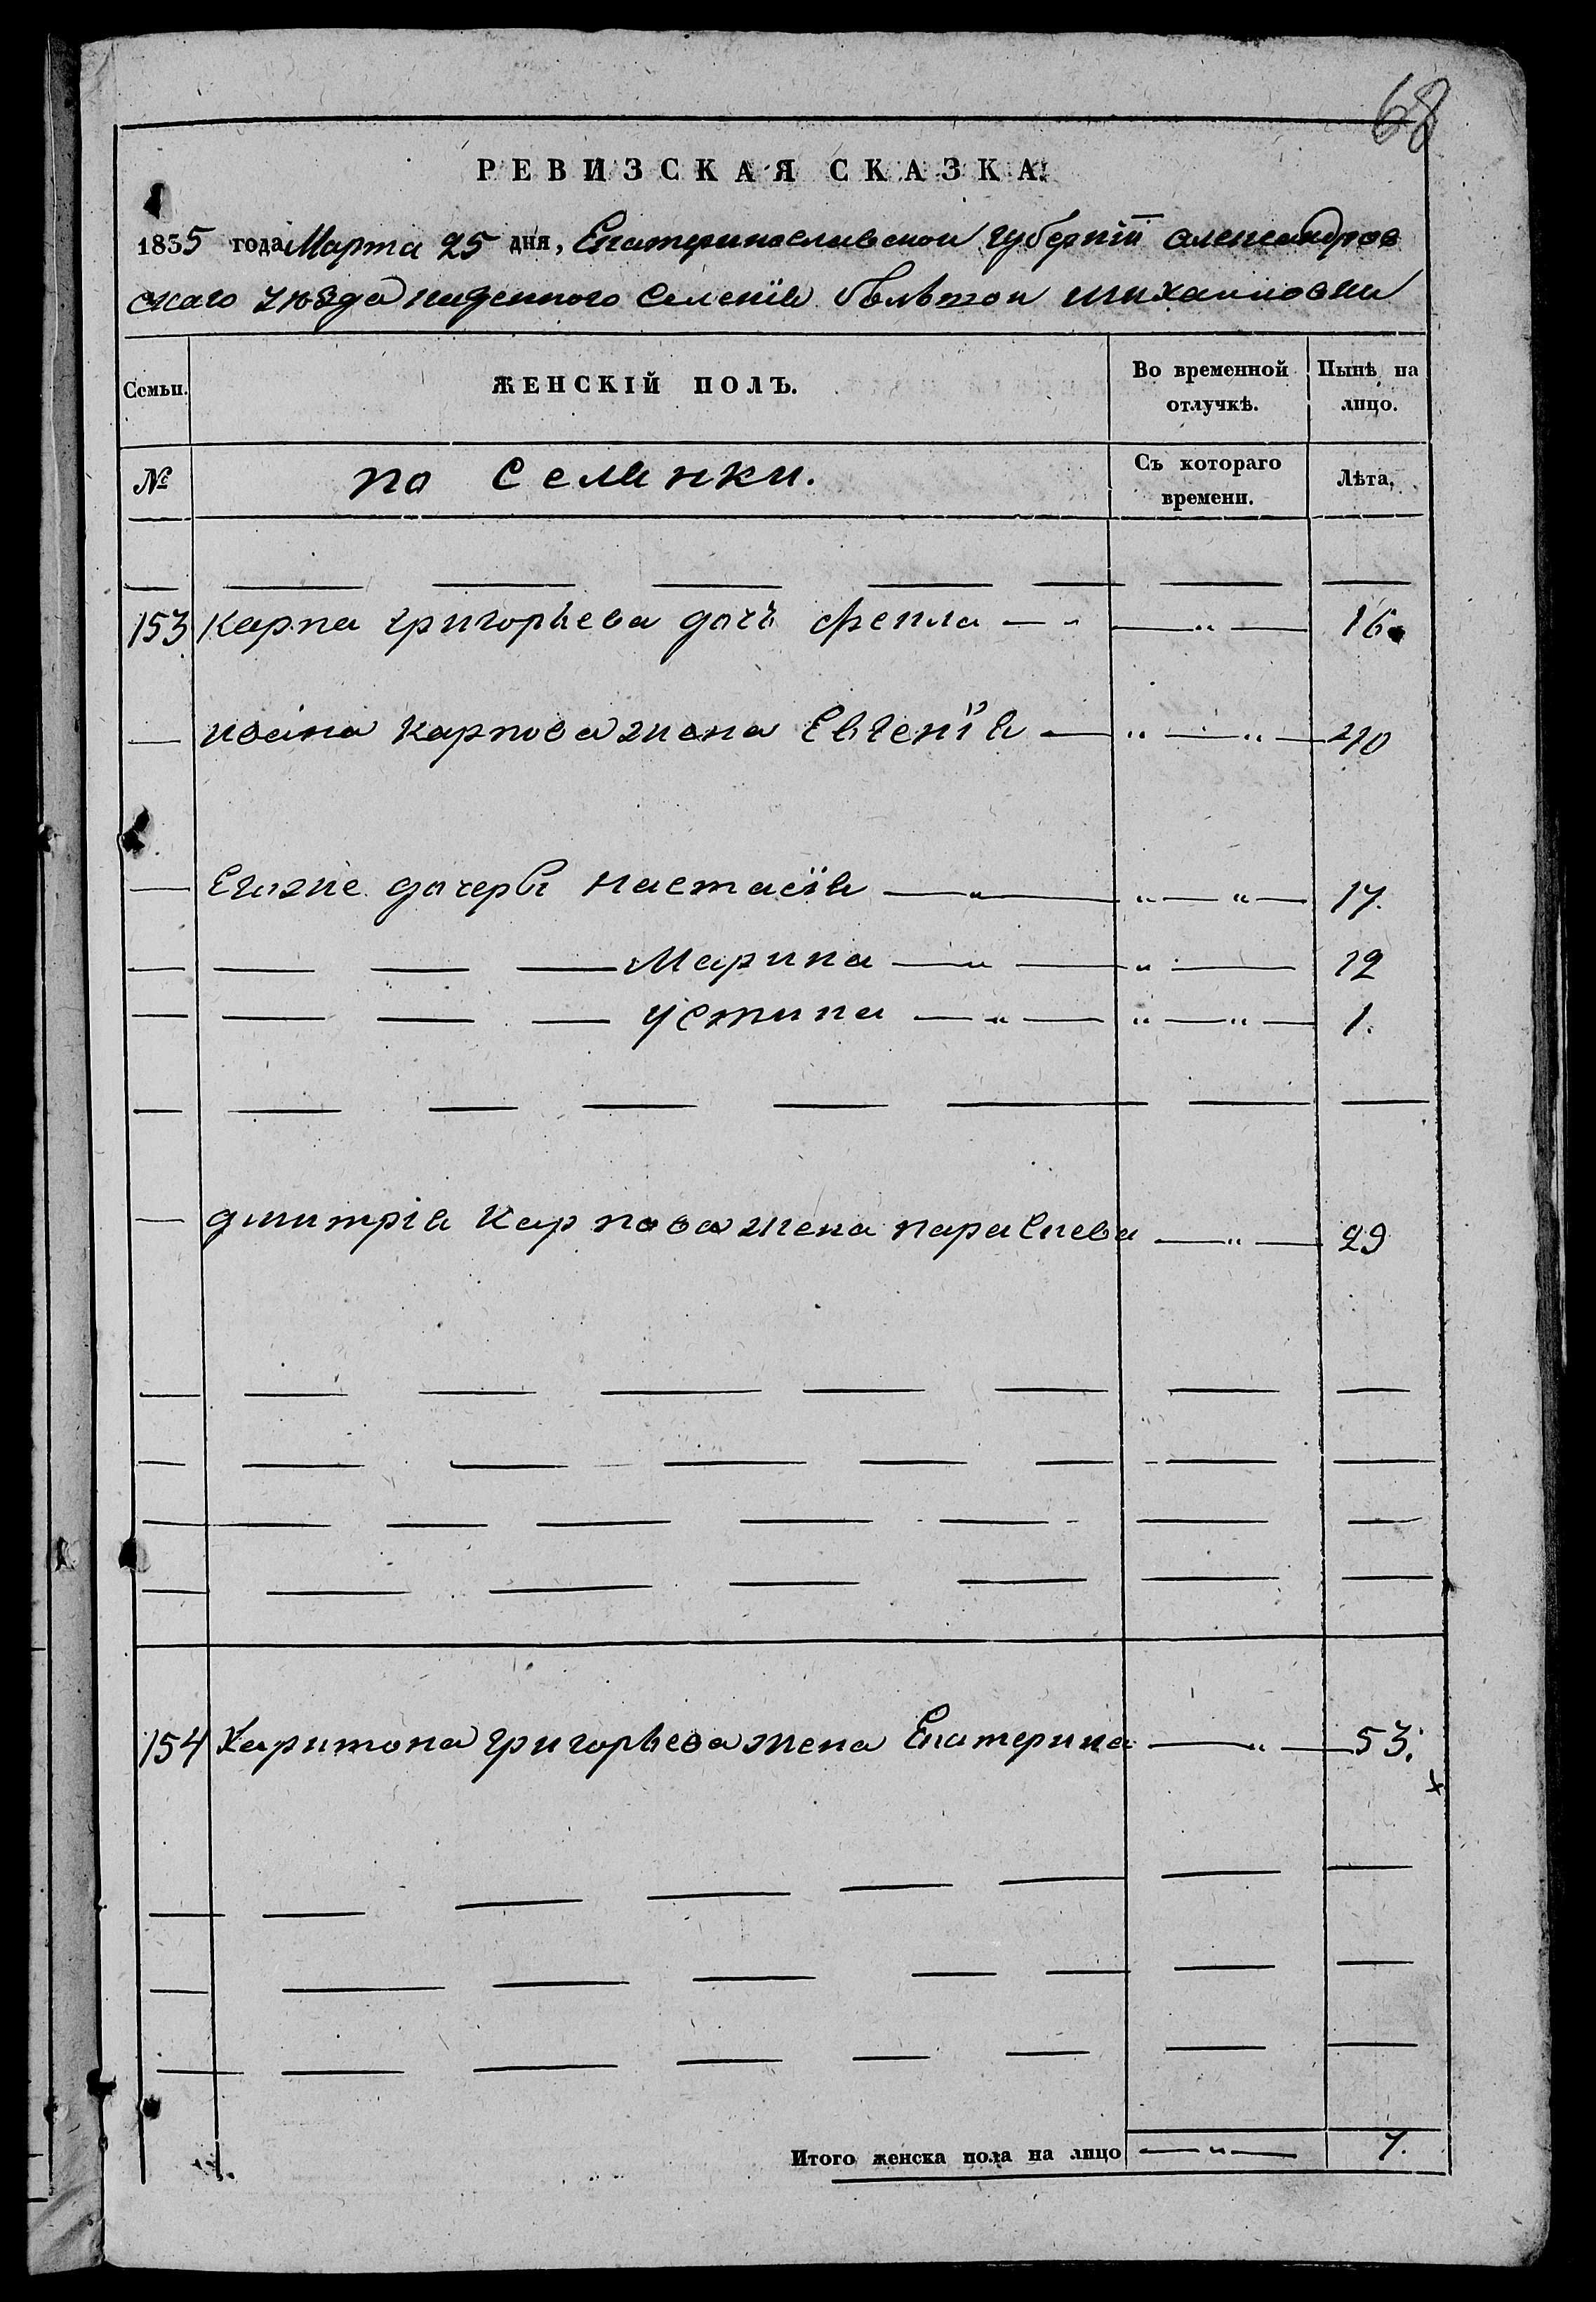 68
РЕВИЗСКАЯ СКАЗКА.
1835 года Марта 25 дня, Екатеринославской губернїи александров
скаго уѣзда казенного Селенїя бѣлѣтой михаиловки
Семьи. ЖЕНСКІЙ ПОЛЪ. Во временной отлучкѣ. Нынѣ на лицо.
№ поселянки. Съ котораго времени. Лѣта.
153 Карпа григорьева дочь фекла — „ — „ — 16.
— ивана карпова жена Евгенїя — „ — „ — 40
— Егоже дочеры настасїя — „ — „ — „ — 17.
— — — — Марина — „ — „ — 12
— — — — устина — „ — „ — „ — 1.
— дмитрія Карпова жена парасмева — „ — 29
154 Харитона григорьева жена Екатерина — „ — 53.
Итого женска пола на лицо — „ — 7.